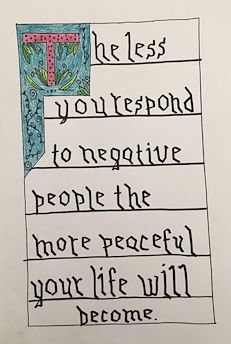 The less
you respond
to negative
people the
more peaceful
your life will
become.